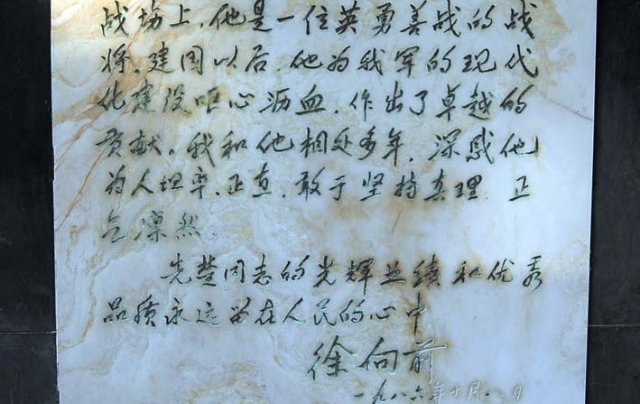 战场上，他是一位英勇善战的战
将。建国以后，他为我军的现代
化建设呕心沥血，作出了卓越的
贡献。我和他相处多年，深感他
为人坦率、正直，敢于坚持真理，正
气凛然。
先楚同志的光辉业绩和优秀
品质永远留在人民的心中。
徐向前
一九八六年十月八日